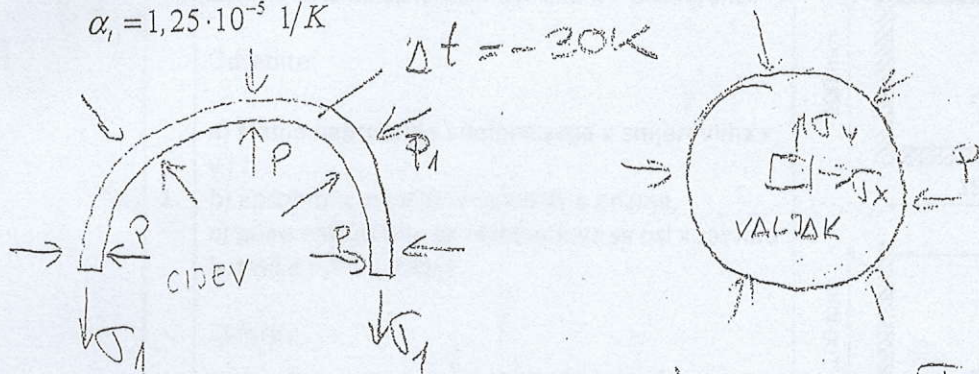 α_t = 1,25·10⁻⁵ 1/K
Δt = -20K
P
P₁
P
P
CIJEV
σ₁
σ₁
σy
σx
P
VALJAK